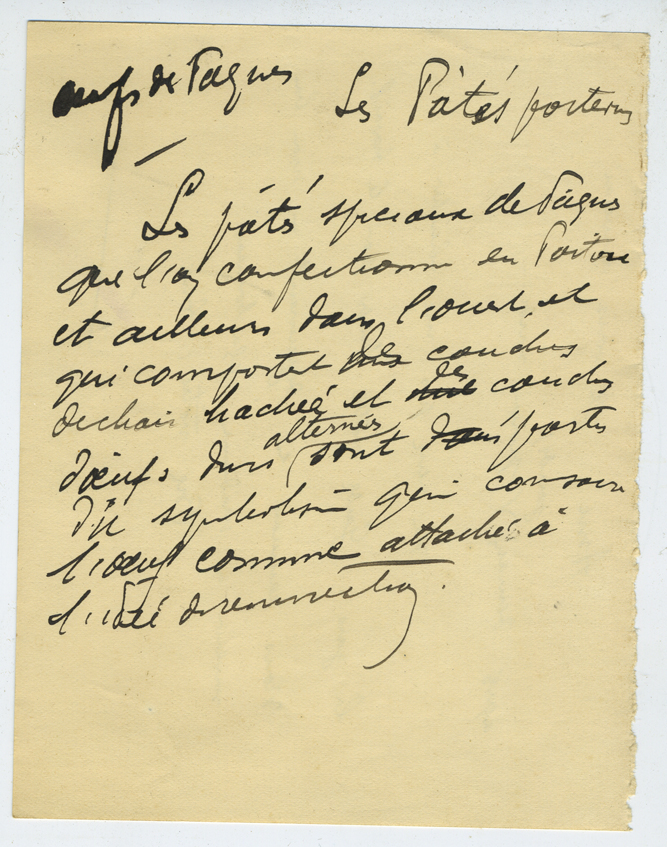 œufs de Pâques
Les Pâtés
Les pâtés spéciaux de Pâques
que l'on confectionne en Poitou
et ailleurs dans l'ouest, et
qui comportent des couches
de chair hachée et des couches
alternés
d'œufs durs sont portés
du symbolisme qui consacre
l'œuf comme attaché à
l'idée de résurrection.